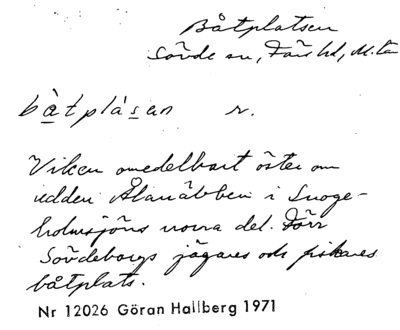 Båtplatsen
Sövde sn, Färs hd, M. län
båtplásan r.
Viken omedelbart öster om
udden Ålanäbben i Snoge-
holmsjöns norra del. Förr
Sövdeborgs jägares och fiskares
båtplats.
Nr 12026 Göran Hallberg 1971